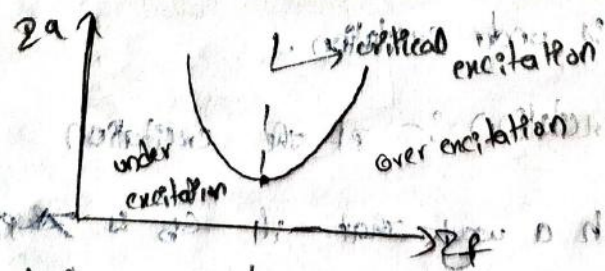 Ia
critical excitation
under excitation
over excitation
If